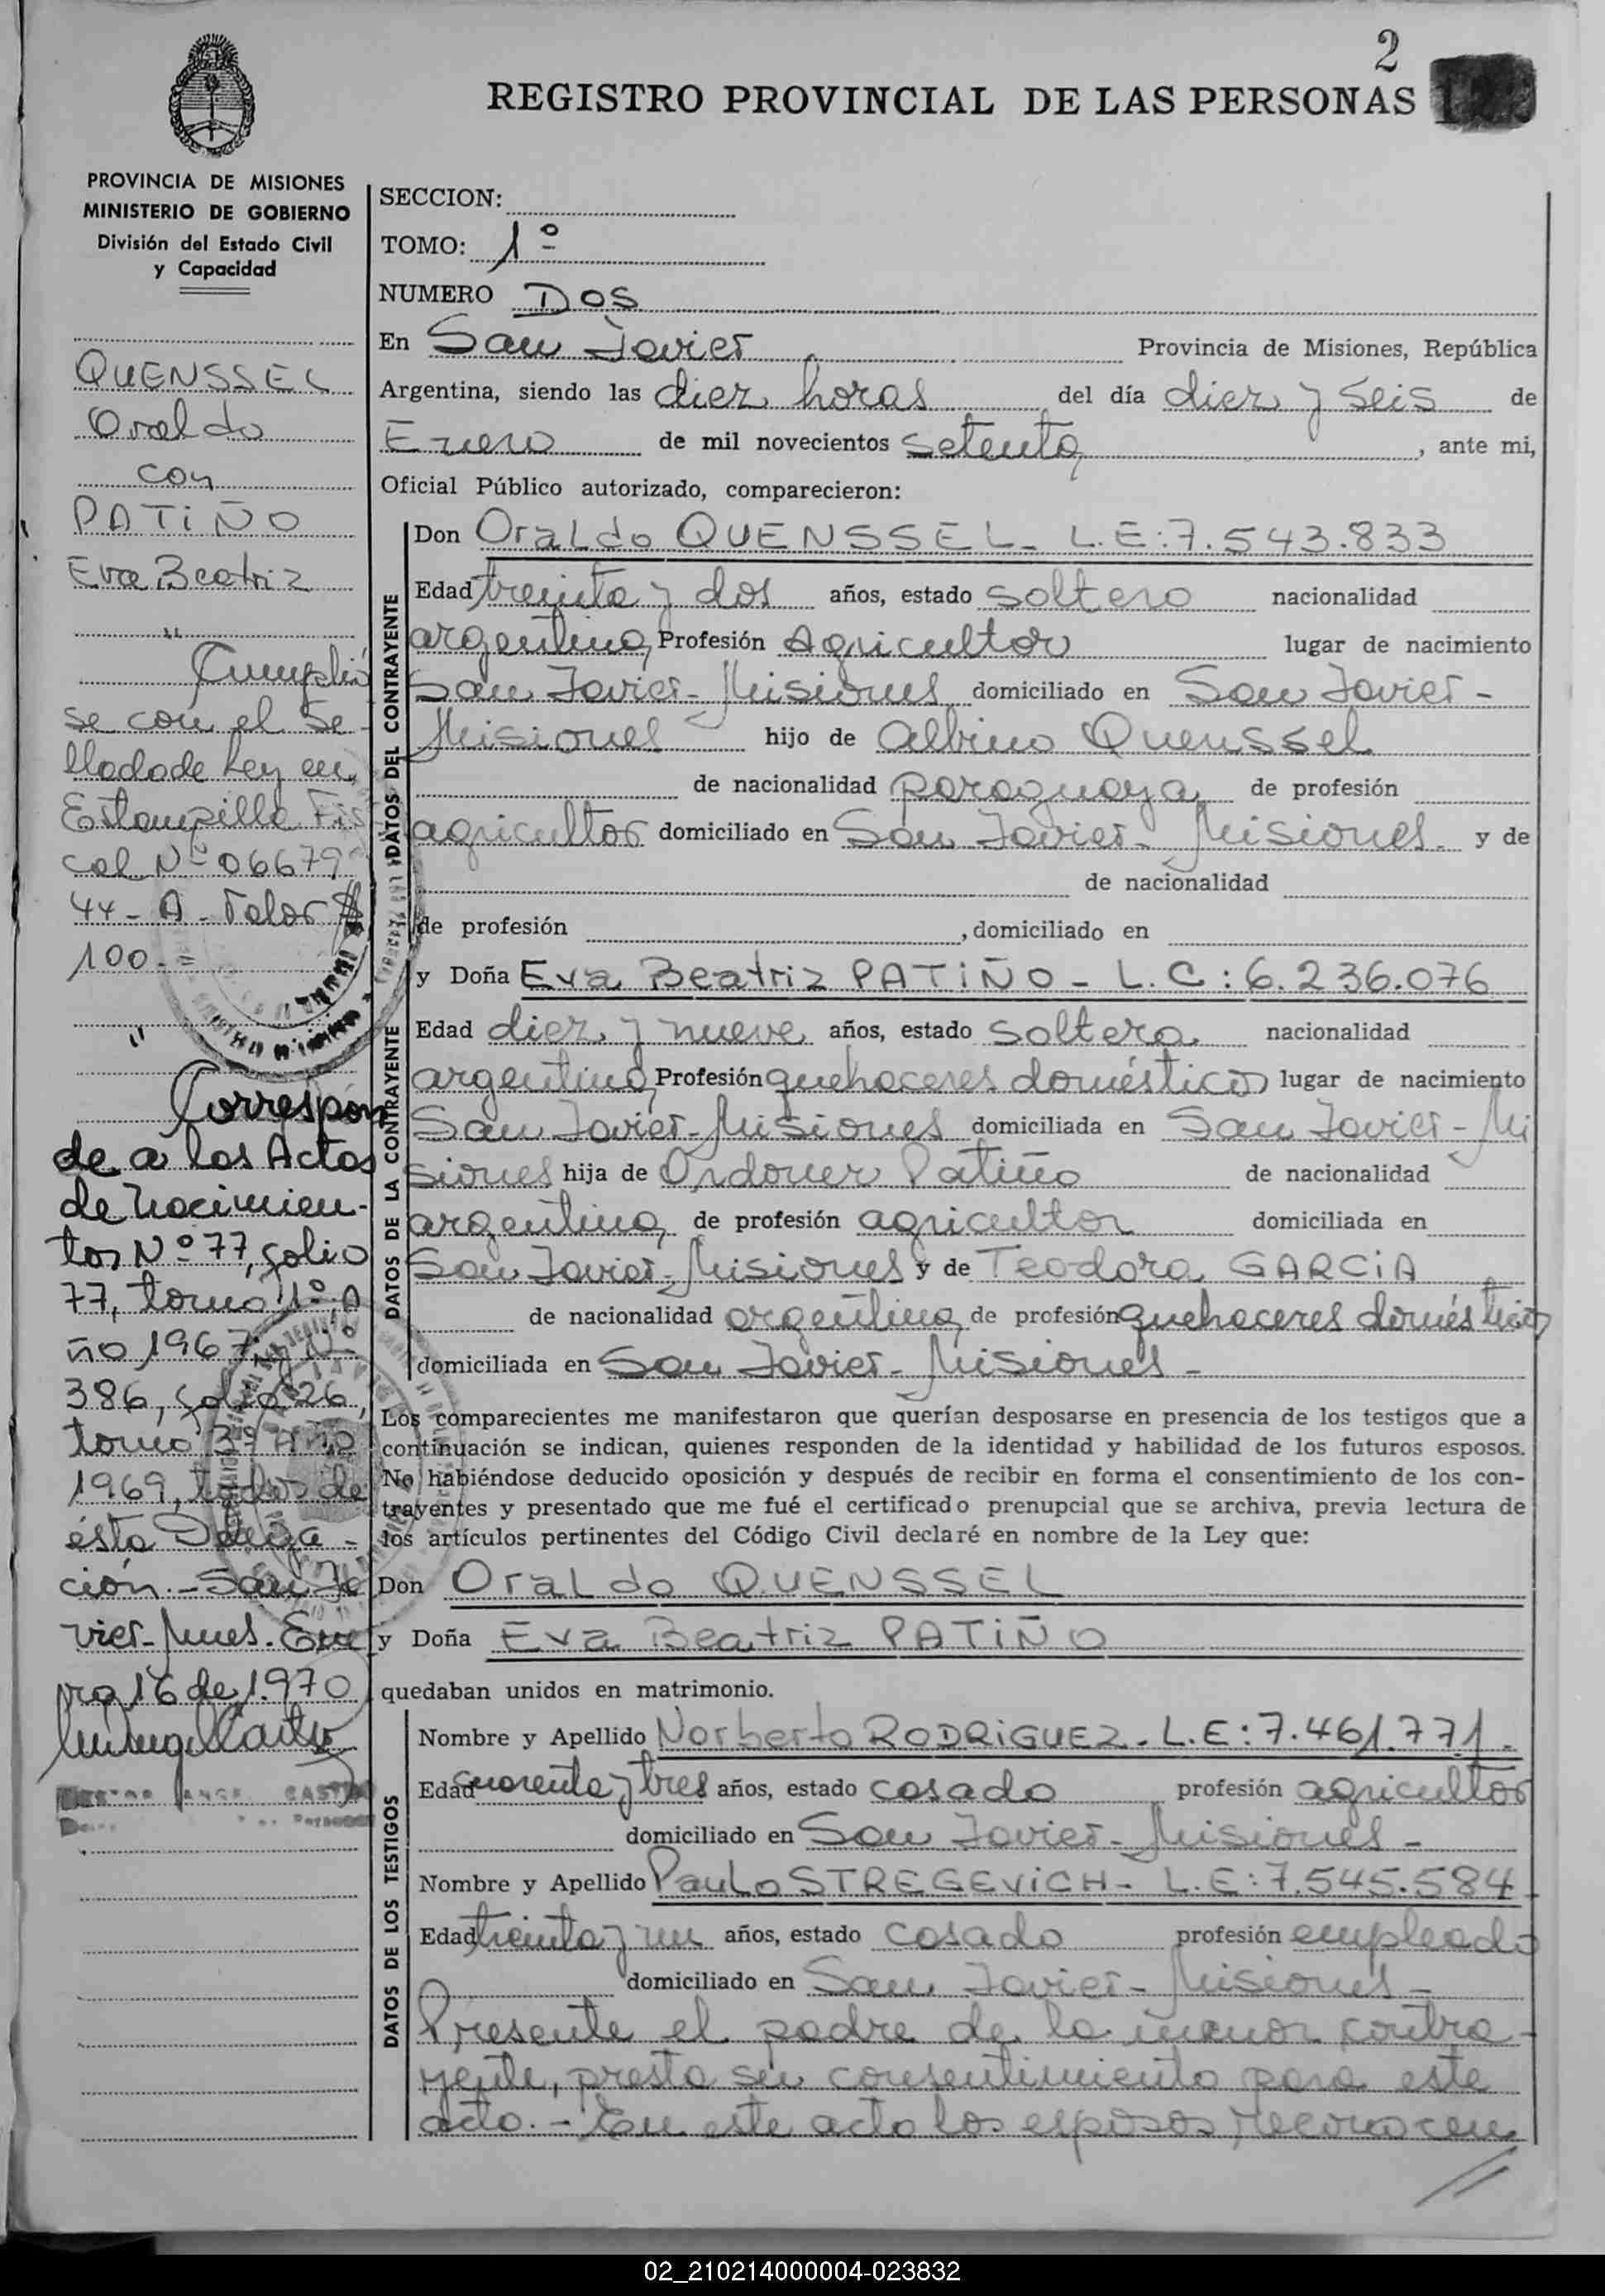 2
REGISTRO PROVINCIAL DE LAS PERSONAS
PROVINCIA DE MISIONES
MINISTERIO DE GOBIERNO
División del Estado Civil
y Capacidad
QUENSSEL
Oraldo
con
PATIÑO
Eva Beatriz
"
Cumplió
se con el Se-
llado de Ley en
Estampilla Fis
cal Nº 06679
44-A-Valor $
100.=
"
Correspon
de a las Actas
de nacimien-
tos Nº 77, folio
77, tomo 1º, A
ño 1967, y Nº
386, folio 26,
tomo 3º Año
1969, todos de
ésta Delega-
ción.-San Ja
vier-Mnes. Ene
ro 16 de 1.970
SECCION:
TOMO: 1º
NUMERO DOS
En San Javier Provincia de Misiones, República
Argentina, siendo las diez horas del día diez y seis de
Enero de mil novecientos setenta, ante mi,
Oficial Público autorizado, comparecieron:
DATOS DEL CONTRAYENTE
Don Oraldo QUENSSEL- L.E:7.543.833
Edad treinta y dos años, estado soltero nacionalidad
argentina, Profesión Agricultor lugar de nacimiento
San Javier-Misiones domiciliado en San Javier-
Misiones hijo de Albino Quenssel
de nacionalidad paraguaya de profesión
agricultor domiciliado en San Javier-Misiones. y de
de nacionalidad
de profesión , domiciliado en
DATOS DE LA CONTRAYENTE
y Doña Eva Beatriz PATIÑO - L.C:6.236.076
Edad diez y nueve años, estado soltera nacionalidad
argentina, Profesión quehaceres domésticos lugar de nacimiento
San Javier-Misiones domiciliada en San Javier-Mi
siones hija de Ordoner Patiño de nacionalidad
argentina, de profesión agricultor domiciliada en
San Javier-Misiones y de Teodora GARCIA
de nacionalidad argentina, de profesión quehaceres domésticos
domiciliada en San Javier-Misiones-
Los comparecientes me manifestaron que querían desposarse en presencia de los testigos que a
continuación se indican, quienes responden de la identidad y habilidad de los futuros esposos.
No habiéndose deducido oposición y después de recibir en forma el consentimiento de los con-
trayentes y presentado que me fué el certificado prenupcial que se archiva, previa lectura de
los artículos pertinentes del Código Civil declaré en nombre de la Ley que:
Don Oraldo QUENSSEL
y Doña Eva Beatriz PATIÑO
quedaban unidos en matrimonio.
DATOS DE LOS TESTIGOS
Nombre y Apellido Norberto RODRIGUEZ- L.E:7.461.771-
Edad cuarenta y tres años, estado casado profesión agricultor
domiciliado en San Javier-Misiones-
Nombre y Apellido Paulo STREGEVICH- L.E:7.545.584
Edad treinta y un años, estado casado profesión empleado
domiciliado en San Javier-Misiones-
Presente el padre de la menor contra-
yente, presta su consentimiento para este
acto.- En este acto los esposos reconocen
//
02_210214000004-023832